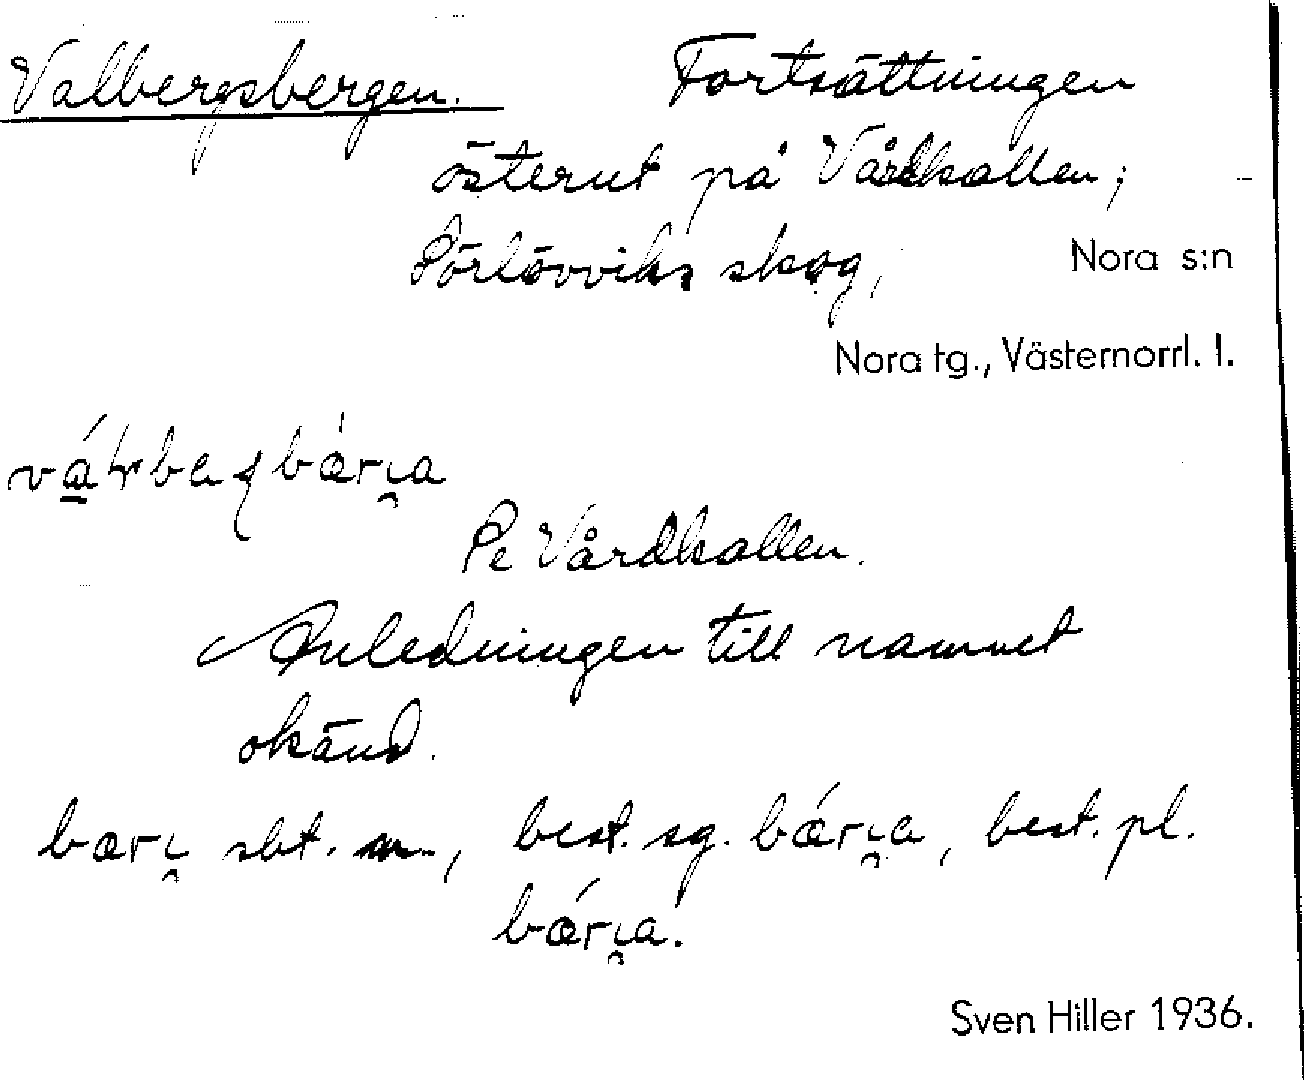 Valbergsbergen. Fortsättningen
österut på Vårdkallen;
Pörlövviks skog, Nora s:n
Nora tg., Västernorrl. l.
bærɩ̯a
Se Vårdkallen.
Anledningen till namnet
okänd.
bærɩ̯ sbt. m., best. sg. bǽrɩ̯a, best. pl.
bǽrɩ̯a.
Sven Hiller 1936.